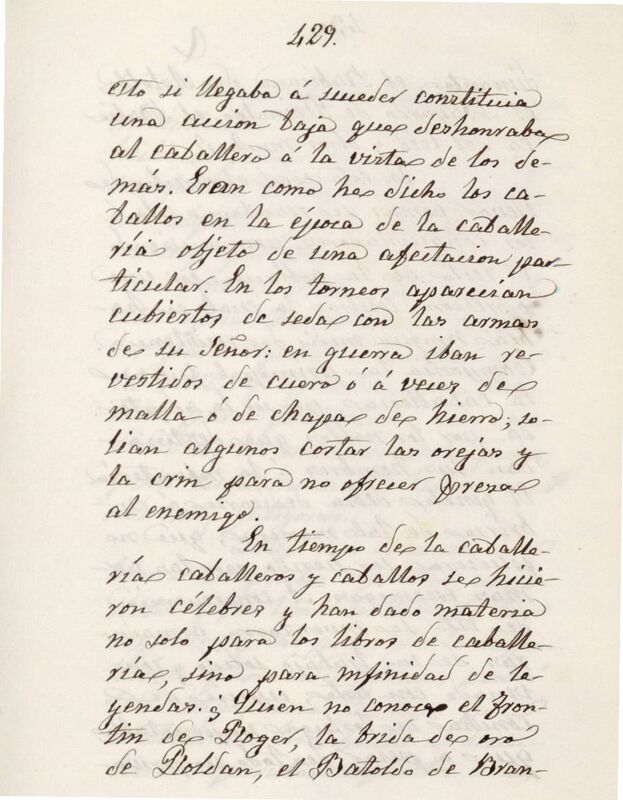 429.
esto si llegaba á suceder constituia
una accion baja que deshonraba
al caballero á la vista de los de-
más. Eran como he dicho los ca-
ballos en la época de la caballe-
ría objeto de una afectacion par-
ticular. En los torneos aparecian
cubiertos de seda con las armas
de su señor: en guerra iban re-
vestidos de cuero ó á veces de
malla ó de chapa de hierro; so-
lian algunos cortar las orejas y
la crin para no ofrecer presa
al enemigo.
En tiempo de la caballe-
ría caballeros y caballos se hicie-
ron célebres y han dado materia
no solo para los libros de caballe-
ría, sino para infinidad de le-
yendas. ¿Quién no conoce el fron-
tin de Roger, la brida de oro
de Roldan, el Batoldo de Bran-